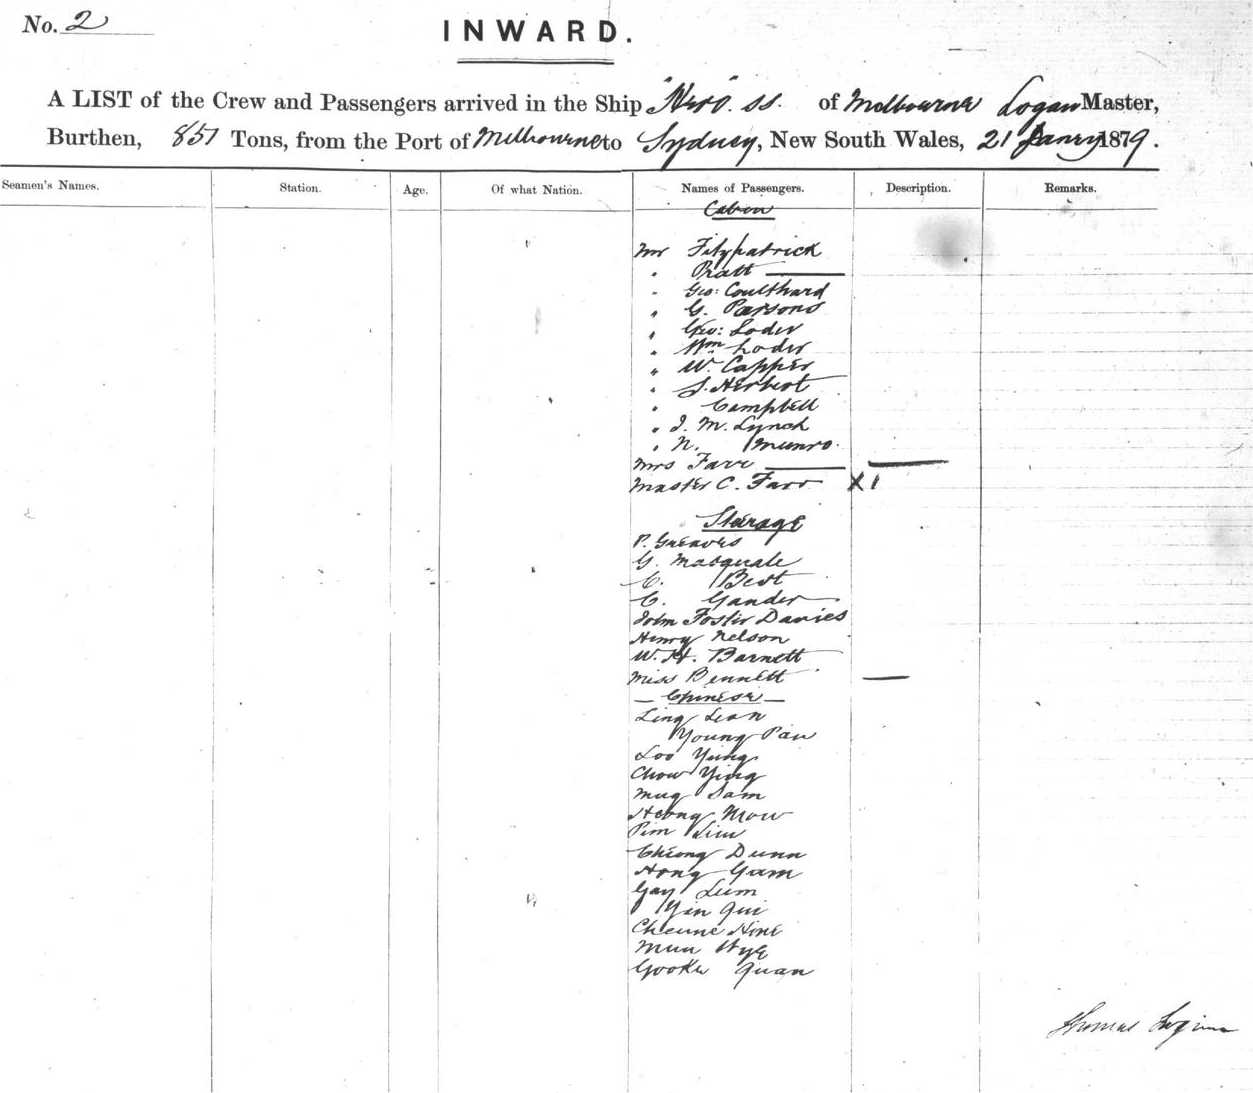 No. 2
INWARD.
A LIST of the Crew and Passengers arrived in the Ship "Hero" ss. of Melbourne Logan Master,
Burthen, 851 Tons, from the Port of Melbourne to Sydney, New South Wales, 21 Janry 1879.
Seamen's Names. Station. Age. Of what Nation. Names of Passengers. Description. Remarks.
Cabin
Mr Fitzpatrick
" Pratt
" Geo: Coulthard
" G. Parsons
" Geo: Loder
" Wm Loder
" W. Capper
" S. Herbert
" Campbell
" J. M. Lynch
" N. Munro
Mrs Farr
Master C. Farr X 1
Steerage
P. Greaves
G. Masquale
C. Best
C. Gander
John Foster Davies
Henry Nelson
W. H. Barnett
Miss Bennett
— Chinese —
Ling Lean
Young Pau
Loo Yung
Chow Ying
Mug Sam
Heong Mow
Pim Lim
Cheong Dunn
Hong Gam
Gay Lum
Yin Qui
Cheune Hine
Mun Hye
Gooke Quan
Thomas Logan